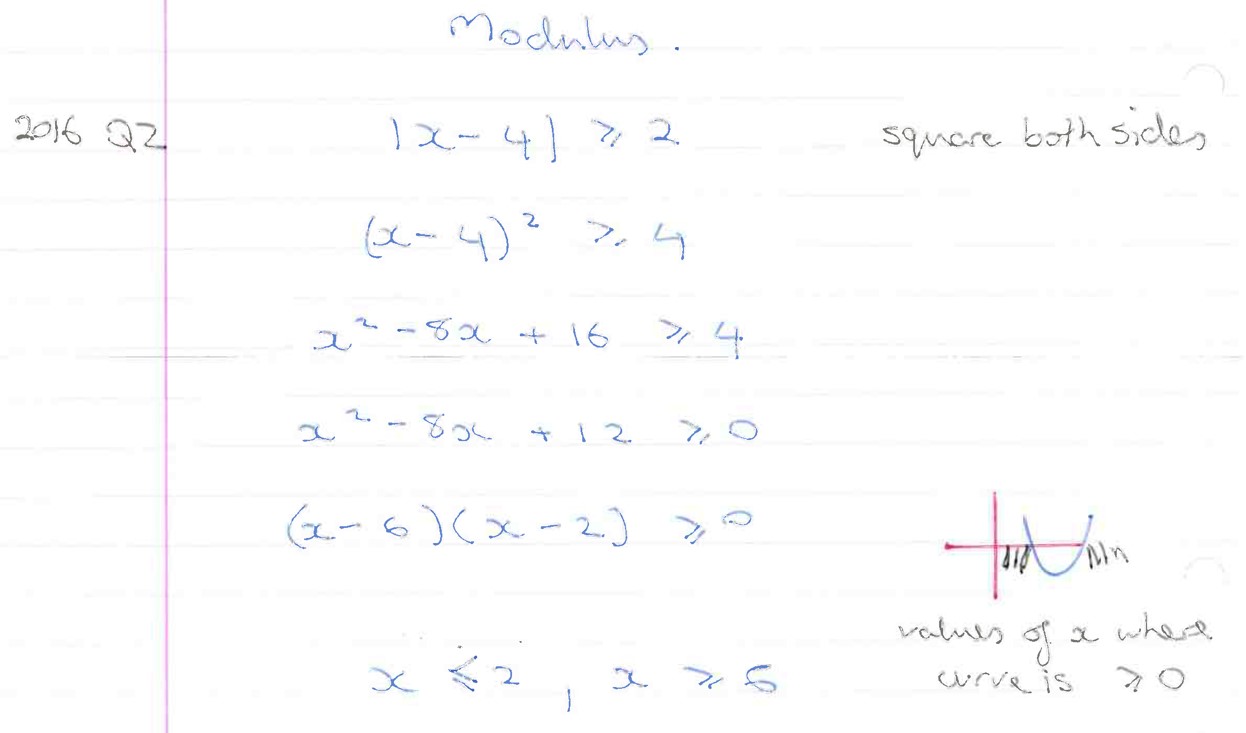 Modulus.
2016 Q2 |x - 4| ⩾ 2 square both sides
(x - 4)² ⩾ 4
x² - 8x + 16 ⩾ 4
x² - 8x + 12 ⩾ 0
(x - 6)(x - 2) ⩾ 0
x ⩽ 2, x ⩾ 6
values of x where
curve is ⩾ 0